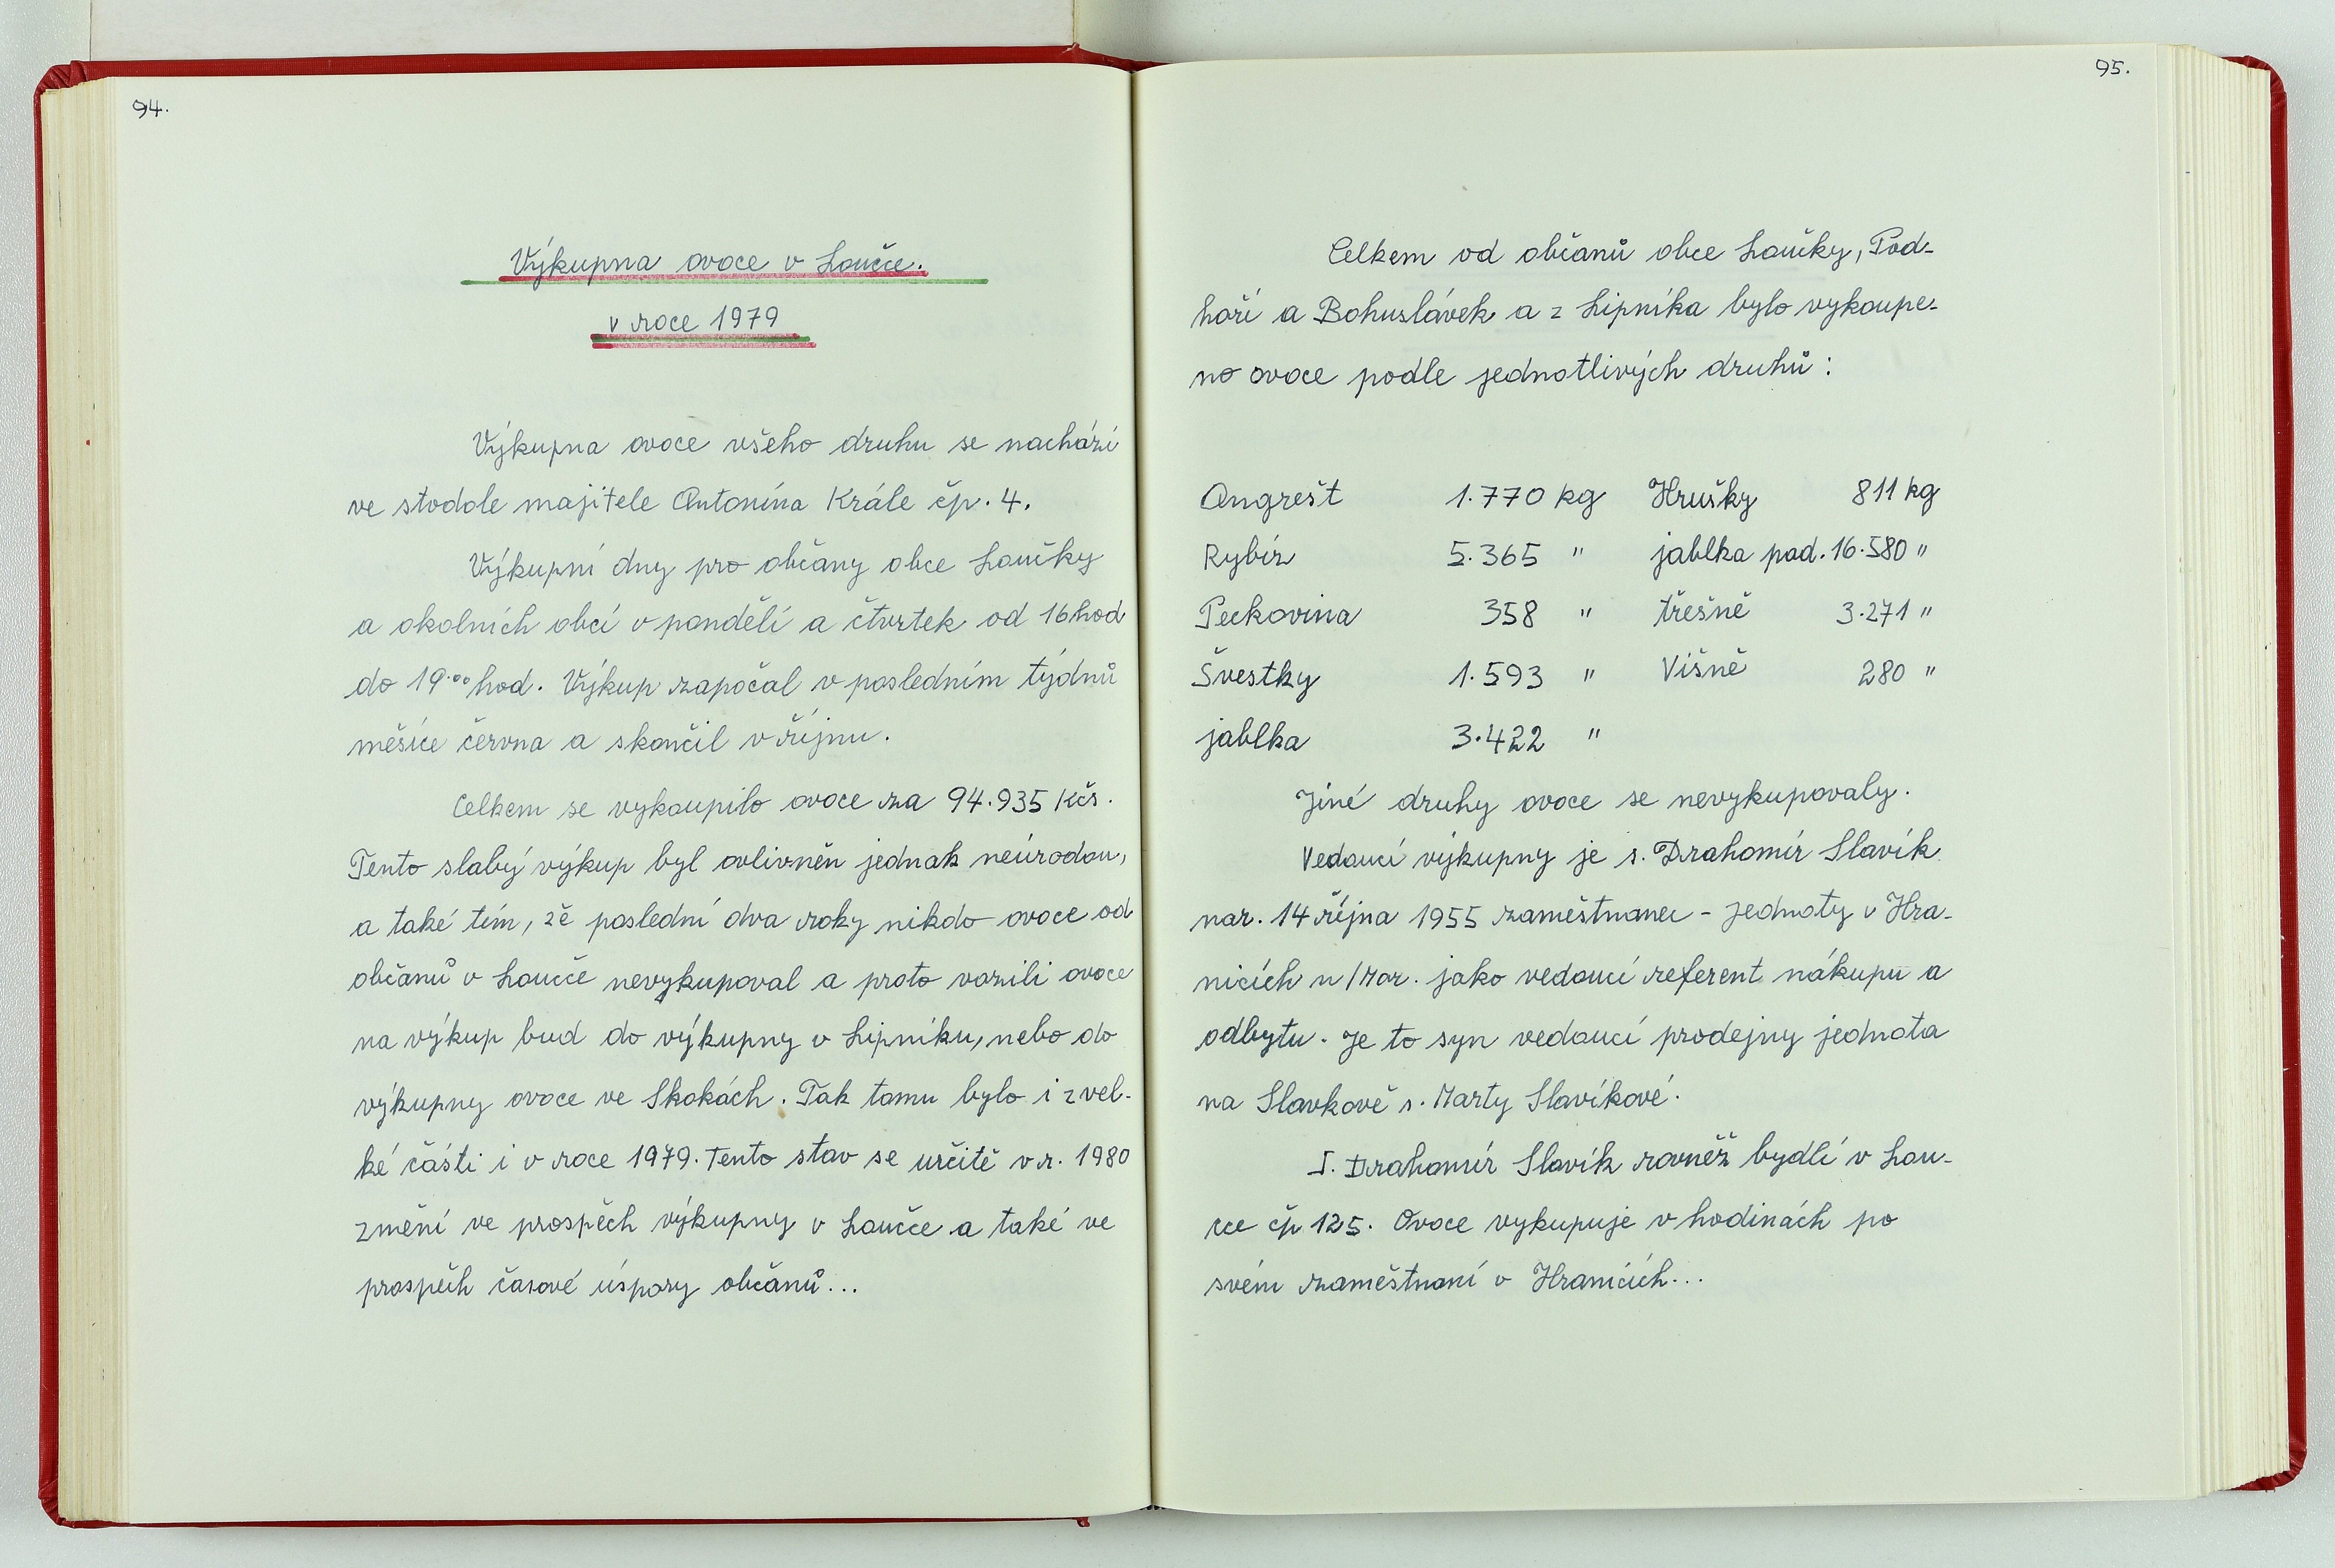 94.
Výkupna ovoce v Loučce.
v roce 1979
Výkupna ovoce všeho druhu se nachází
ve stodole majitele Antonína Krále čp. 4.
Výkupní dny pro občany obce Loučky
a okolních obcí v pondělí a čtvrtek od 16 hod
do 19.00 hod. Výkup započal v posledním týdnů
měsíce června a skončil v říjnu.
Celkem se vykoupilo ovoce za 94.935 Kčs.
Tento slabý výkup byl ovlivněn jednak neúrodou,
a také tím, že poslední dva roky nikdo ovoce od
občanů v Loučce nevykupoval a proto vozili ovoce
na výkup bud do výkupny v Lipníku, nebo do
výkupny ovoce ve Skokách. Tak tomu bylo i z vel-
ké části i v roce 1979. Tento stav se určitě v r. 1980
změní ve prospěch výkupny v Loučce a také ve
prospěch časové úspory občanů...
95.
Celkem od občanů obce Loučky, Pod-
hoří a Bohuslávek a z Lipníka bylo vykoupe-
no ovoce podle jednotlivých druhů :
Angrešt 1.770 kg Hrušky 811 kg
Rybíz 5.365 " jablka pad. 16.580 "
Peckovina 358 " třešně 3.271 "
Švestky 1.593 " Višně 280 "
jablka 3.422 "
Jiné druhy ovoce se nevykupovaly.
Vedoucí výkupny je s. Drahomír Slavík
nar. 14 října 1955 zaměstnanec - Jednoty v Hra-
nicích n/Mor. jako vedoucí referent nákupu a
odbytu. Je to syn vedoucí prodejny jednota
na Slavkově s. Marty Slavíkové.
S. Drahomír Slavík rovněž bydlí v Lou-
čce čp 125. Ovoce vykupuje v hodinách po
svém zaměstnaní v Hranicích...